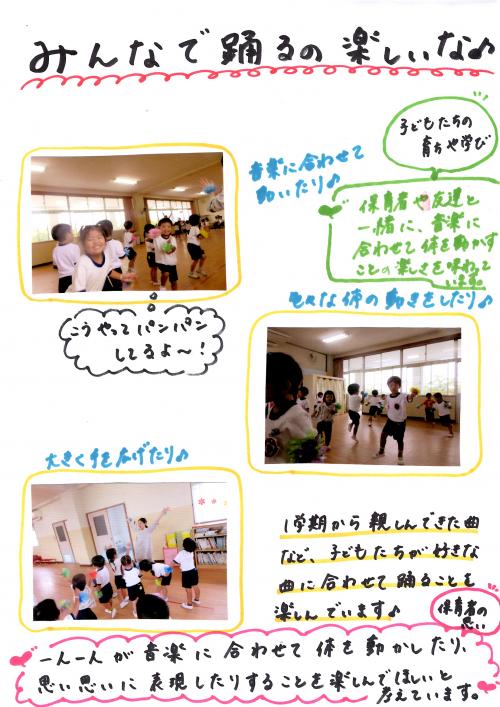 みんなで踊るの楽しいな♪
子どもたちの
育ちや学び
音楽に合わせて
動いたり♪
保育者や友達と
一緒に、音楽に
合わせて体を動かす
ことの楽しさを味わって
います。
色々な体の動きをしたり♪
こうやってパンパン
してるよ〜!
大きく手を広げたり♪
1学期から親しんできた曲
など、子どもたちが好きな
曲に合わせて踊ることを
楽しんでいます♪
保育者の
思い
一人一人が音楽に合わせて体を動かしたり、
思い思いに表現したりすることを楽しんでほしいと
考えています。